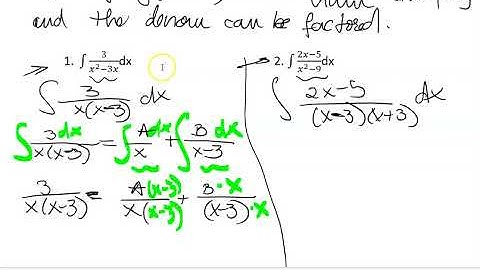 and the denom can be factored.
1. ∫ 3/(x²-3x) dx
∫ 3/(x(x-3)) dx
∫ 3dx/(x(x-3)) = ∫ A dx/x + ∫ B dx/(x-3)
3/(x(x-3)) = A(x-3)/(x(x-3)) + B·x/((x-3)·x)
2. ∫ (2x-5)/(x²-9) dx
∫ (2x-5)/((x-3)(x+3)) dx